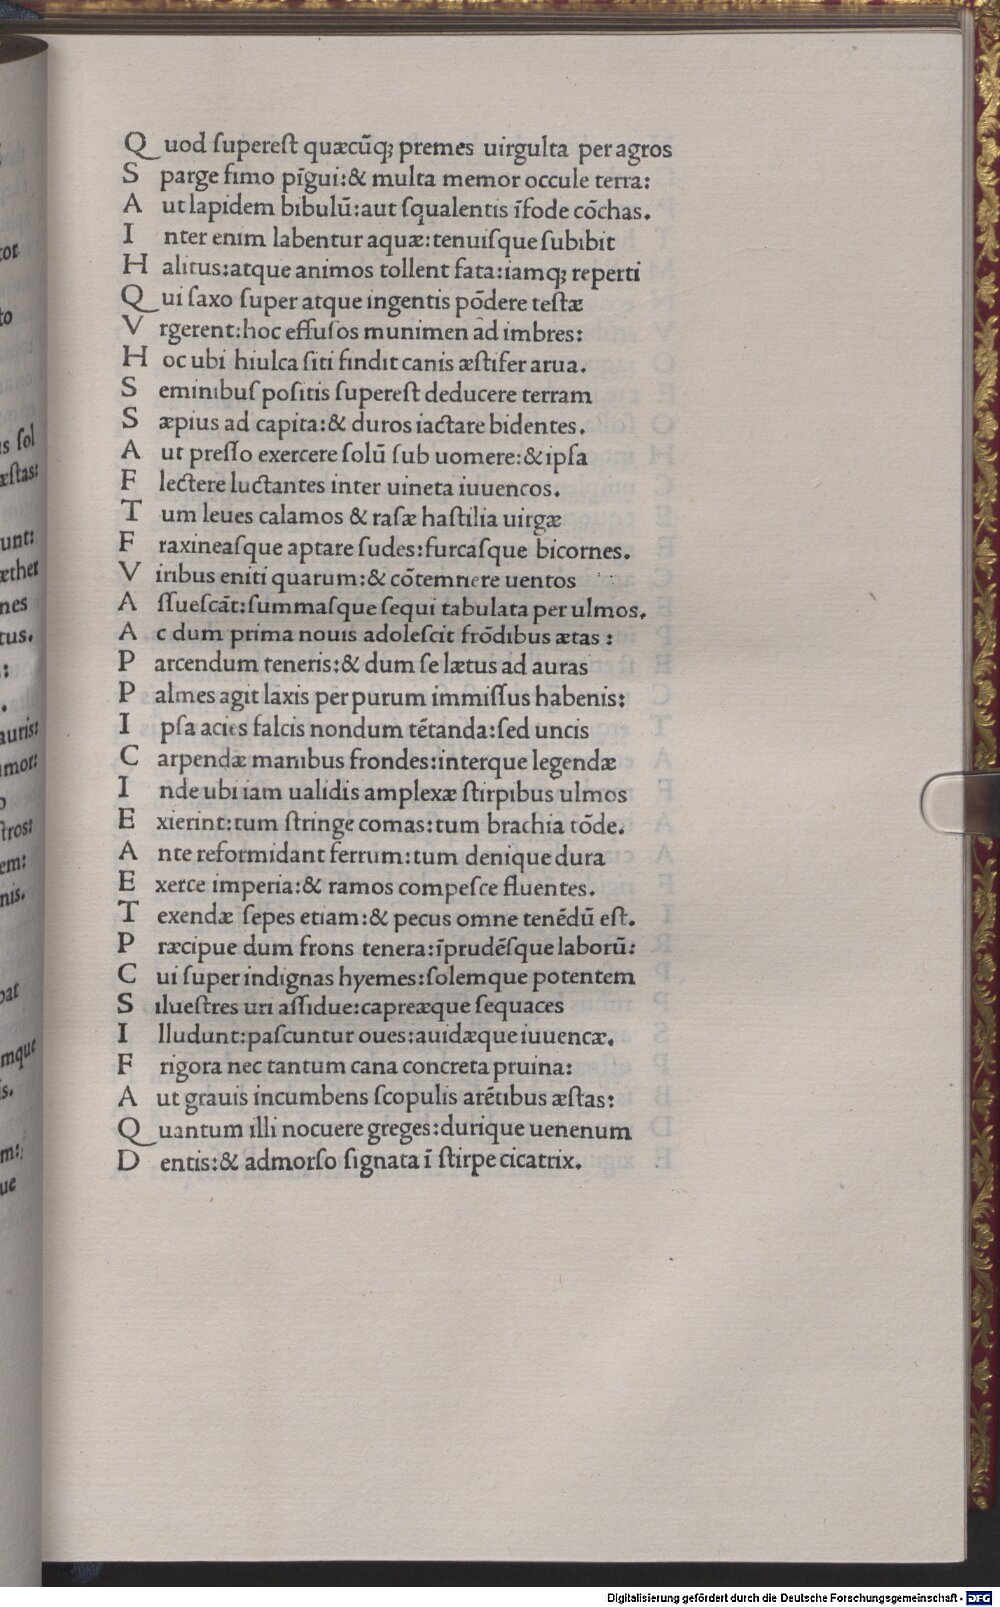 Quod ſupereſt quæcūq; premes uirgulta per agros
Sparge fimo pīgui:& multa memor occule terra:
Aut lapidem bibulū:aut ſqualentis īfode cōchas.
Inter enim labentur aquæ:tenuiſque ſubibit
Halitus:atque animos tollent ſata:iamq; reperti
Qui ſaxo ſuper atque ingentis pōdere teſtæ
Vrgerent:hoc effuſos munimen ad imbres:
Hoc ubi hiulca ſiti findit canis æſtifer arua.
Seminibuſ poſitis ſupereſt deducere terram
Sæpius ad capita:& duros iactare bidentes.
Aut preſſo exercere ſolū ſub uomere:& ipſa
Flectere luctantes inter uineta iuuencos.
Tum leues calamos & raſæ haſtilia uirgæ
Fraxineaſque aptare ſudes:furcaſque bicornes.
Viribus eniti quarum:& cōtemnere uentos
Aſſueſcāt:ſummaſque ſequi tabulata per ulmos.
Ac dum prima nouis adoleſcit frōdibus ætas :
Parcendum teneris:& dum ſe lætus ad auras
Palmes agit laxis per purum immiſſus habenis:
Ipſa acies falcis nondum tētanda:ſed uncis
Carpendæ manibus frondes:interque legendæ
Inde ubi iam ualidis amplexæ ſtirpibus ulmos
Exierint:tum ſtringe comas:tum brachia tōde.
Ante reformidant ferrum:tum denique dura
Exerce imperia:& ramos compeſce fluentes.
Texendæ ſepes etiam:& pecus omne tenēdū eſt.
Præcipue dum frons tenera:īprudēſque laborū:
Cui ſuper indignas hyemes:ſolemque potentem
Silueſtres uri aſſidue:capreæque ſequaces
Illudunt:paſcuntur oues:auidæque iuuencæ.
Frigora nec tantum cana concreta pruina:
Aut grauis incumbens ſcopulis arētibus æſtas:
Quantum illi nocuere greges:durique uenenum
Dentis:& admorſo ſignata ī ſtirpe cicatrix.
Digitalisierung gefördert durch die Deutsche Forschungsgemeinschaft - DFG